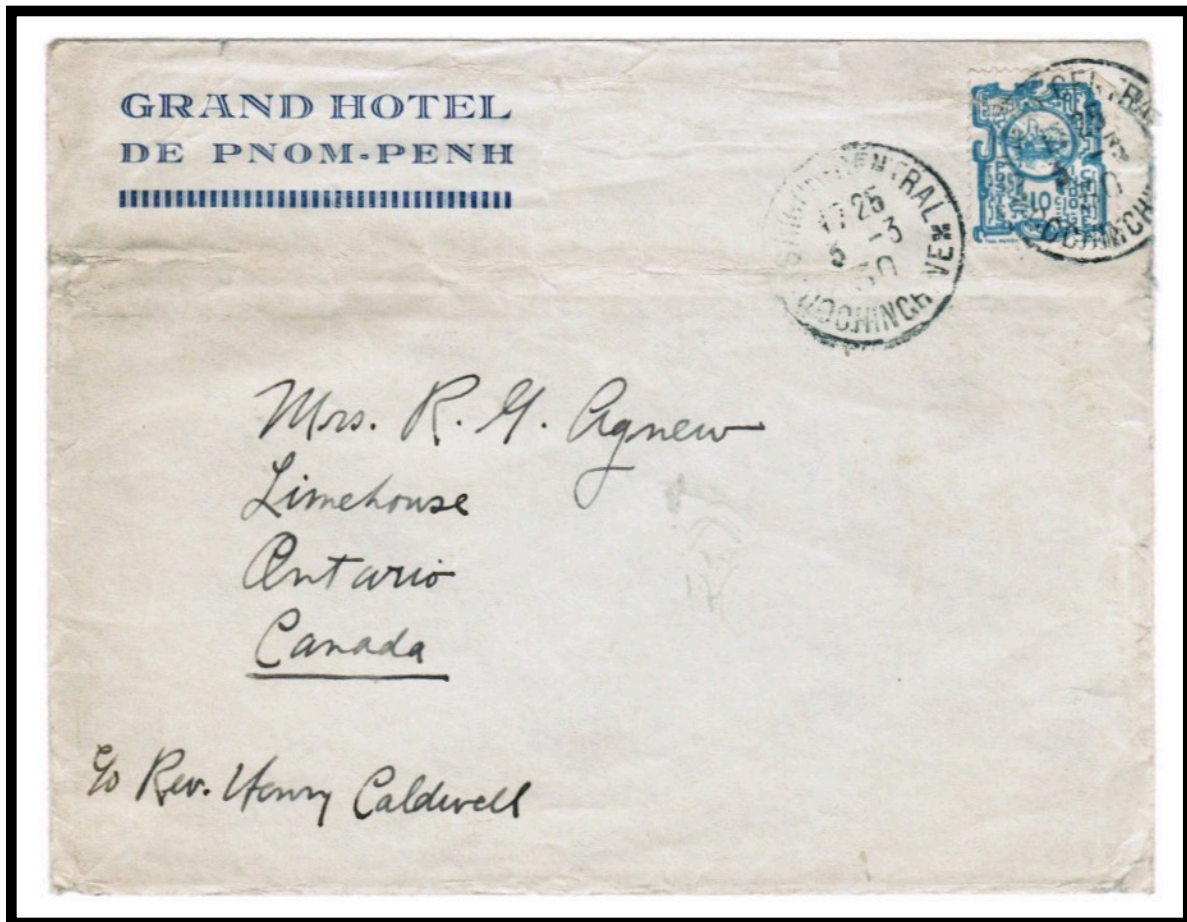 GRAND HOTEL
DE PNOM-PENH
CENTRAL
25
-3
COCHINCHINE
10
Mrs. R. G. Agnew
Limehouse
Ontario
Canada
c/o Rev. Henry Caldwell